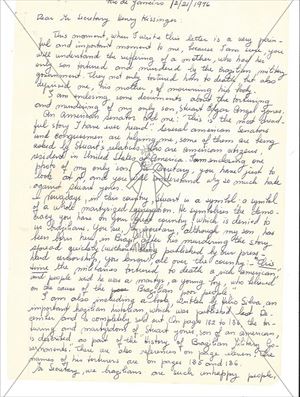 Rio de Janeiro / 2/21/1976
Dear Mr Secretary Henry Kissinger:
This moment, when I write this letter is a very pain-
ful and important moment to me, because I am sure, you
will understand the suffering of a mother, who had his
only son tortured and murdered by the Brazilian military
government. They not only tortured him to death, but also
deprived me, his mother, of mourning his body.
I am enclosing some documents about the torturing
and murdering of my only son: Stuart Edgar Angel Jones.
An American Senator told me: "This is the most dread-
ful story I have ever heard". Several American Senators
and Congressmen are helping me; some of them are being
asked by Stuart's relatives who are American citizens,
resident in United States of America. I am enclosing one
photo of my only son. Mr Secretary, you have just to
look at it, and you will understand why so much hate
against Stuart Jones.
Nowadays, in this country, Stuart is a symbol: a symbol
of a whole martyrized generation. He symbolizes the Demo-
cracy you have on your great country which is denied to
us Brazilians. You see, Mr Secretary, although my son has
been born here in Brazil, after his murdering the story
spread quickly (without being published by our press, a
hard censorship, you know) all over the country = This
time the militaries tortured to death a pure American,
and people used to see as martyr, a young boy, who believed
on the cause of the Brazilian poor people.
I am also including a book, written by Helio Silva an
important brazilian historian which was published last De-
cember and is completely sold out. On page 182 to 186, the tor-
turing and martyrdom of Stuart Jones, son of an american
is described as part of the history of Brazilian Military Go-
vernments. There are also references on page eleven. The
names of his torturers are on pages 185 and 186.
Mr Secretary, we brazilians are such unhappy people,